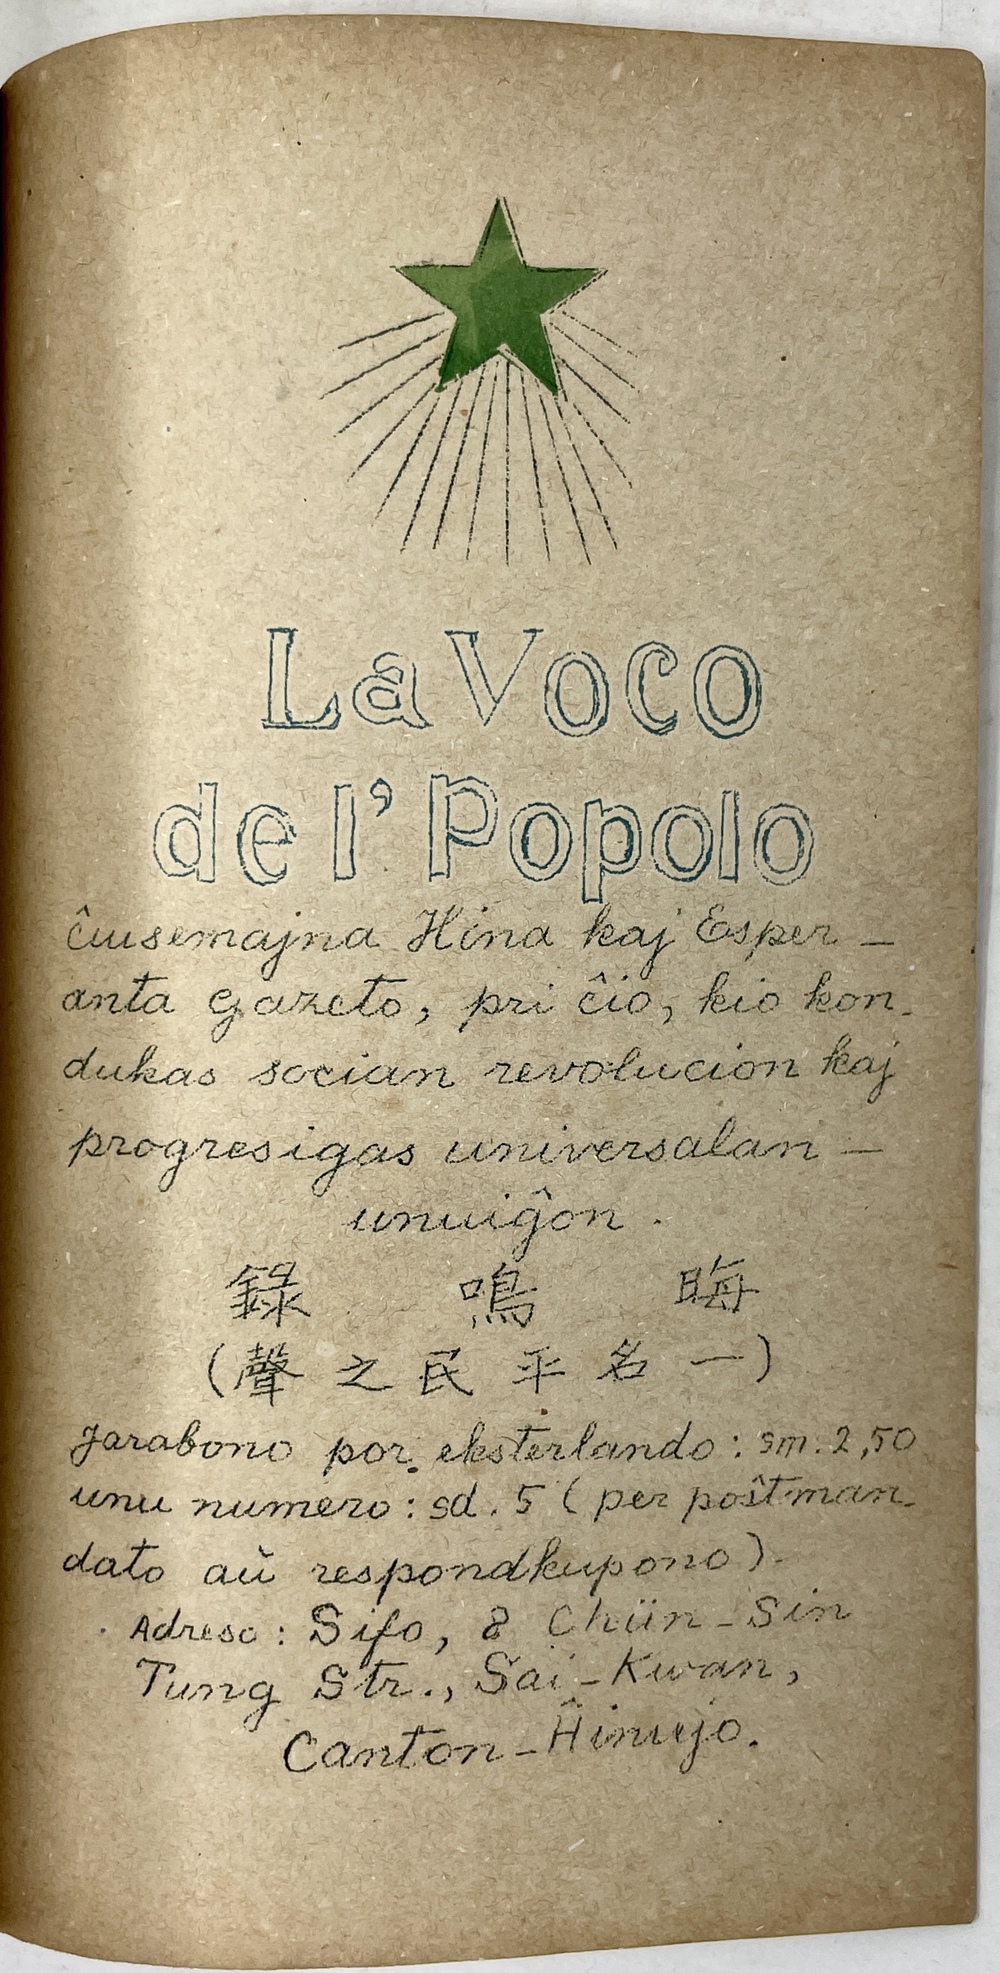 La Voco
de l' Popolo
ĉiusemajna Hina kaj Esper-
anta gazeto, pri ĉio, kio kon-
dukas socian revolucion kaj
progresigas universalan-
unuiĝon.
錄 鳴 晦
(聲之民平名一)
Jarabono por eksterlando: sm. 2,50
unu numero: sd. 5 (per poŝtman-
dato aŭ respondkupono).
Adreso: Sifo, 8 Chün-Sin
Tung Str., Sai-Kwan,
Canton-Ĥinujo.